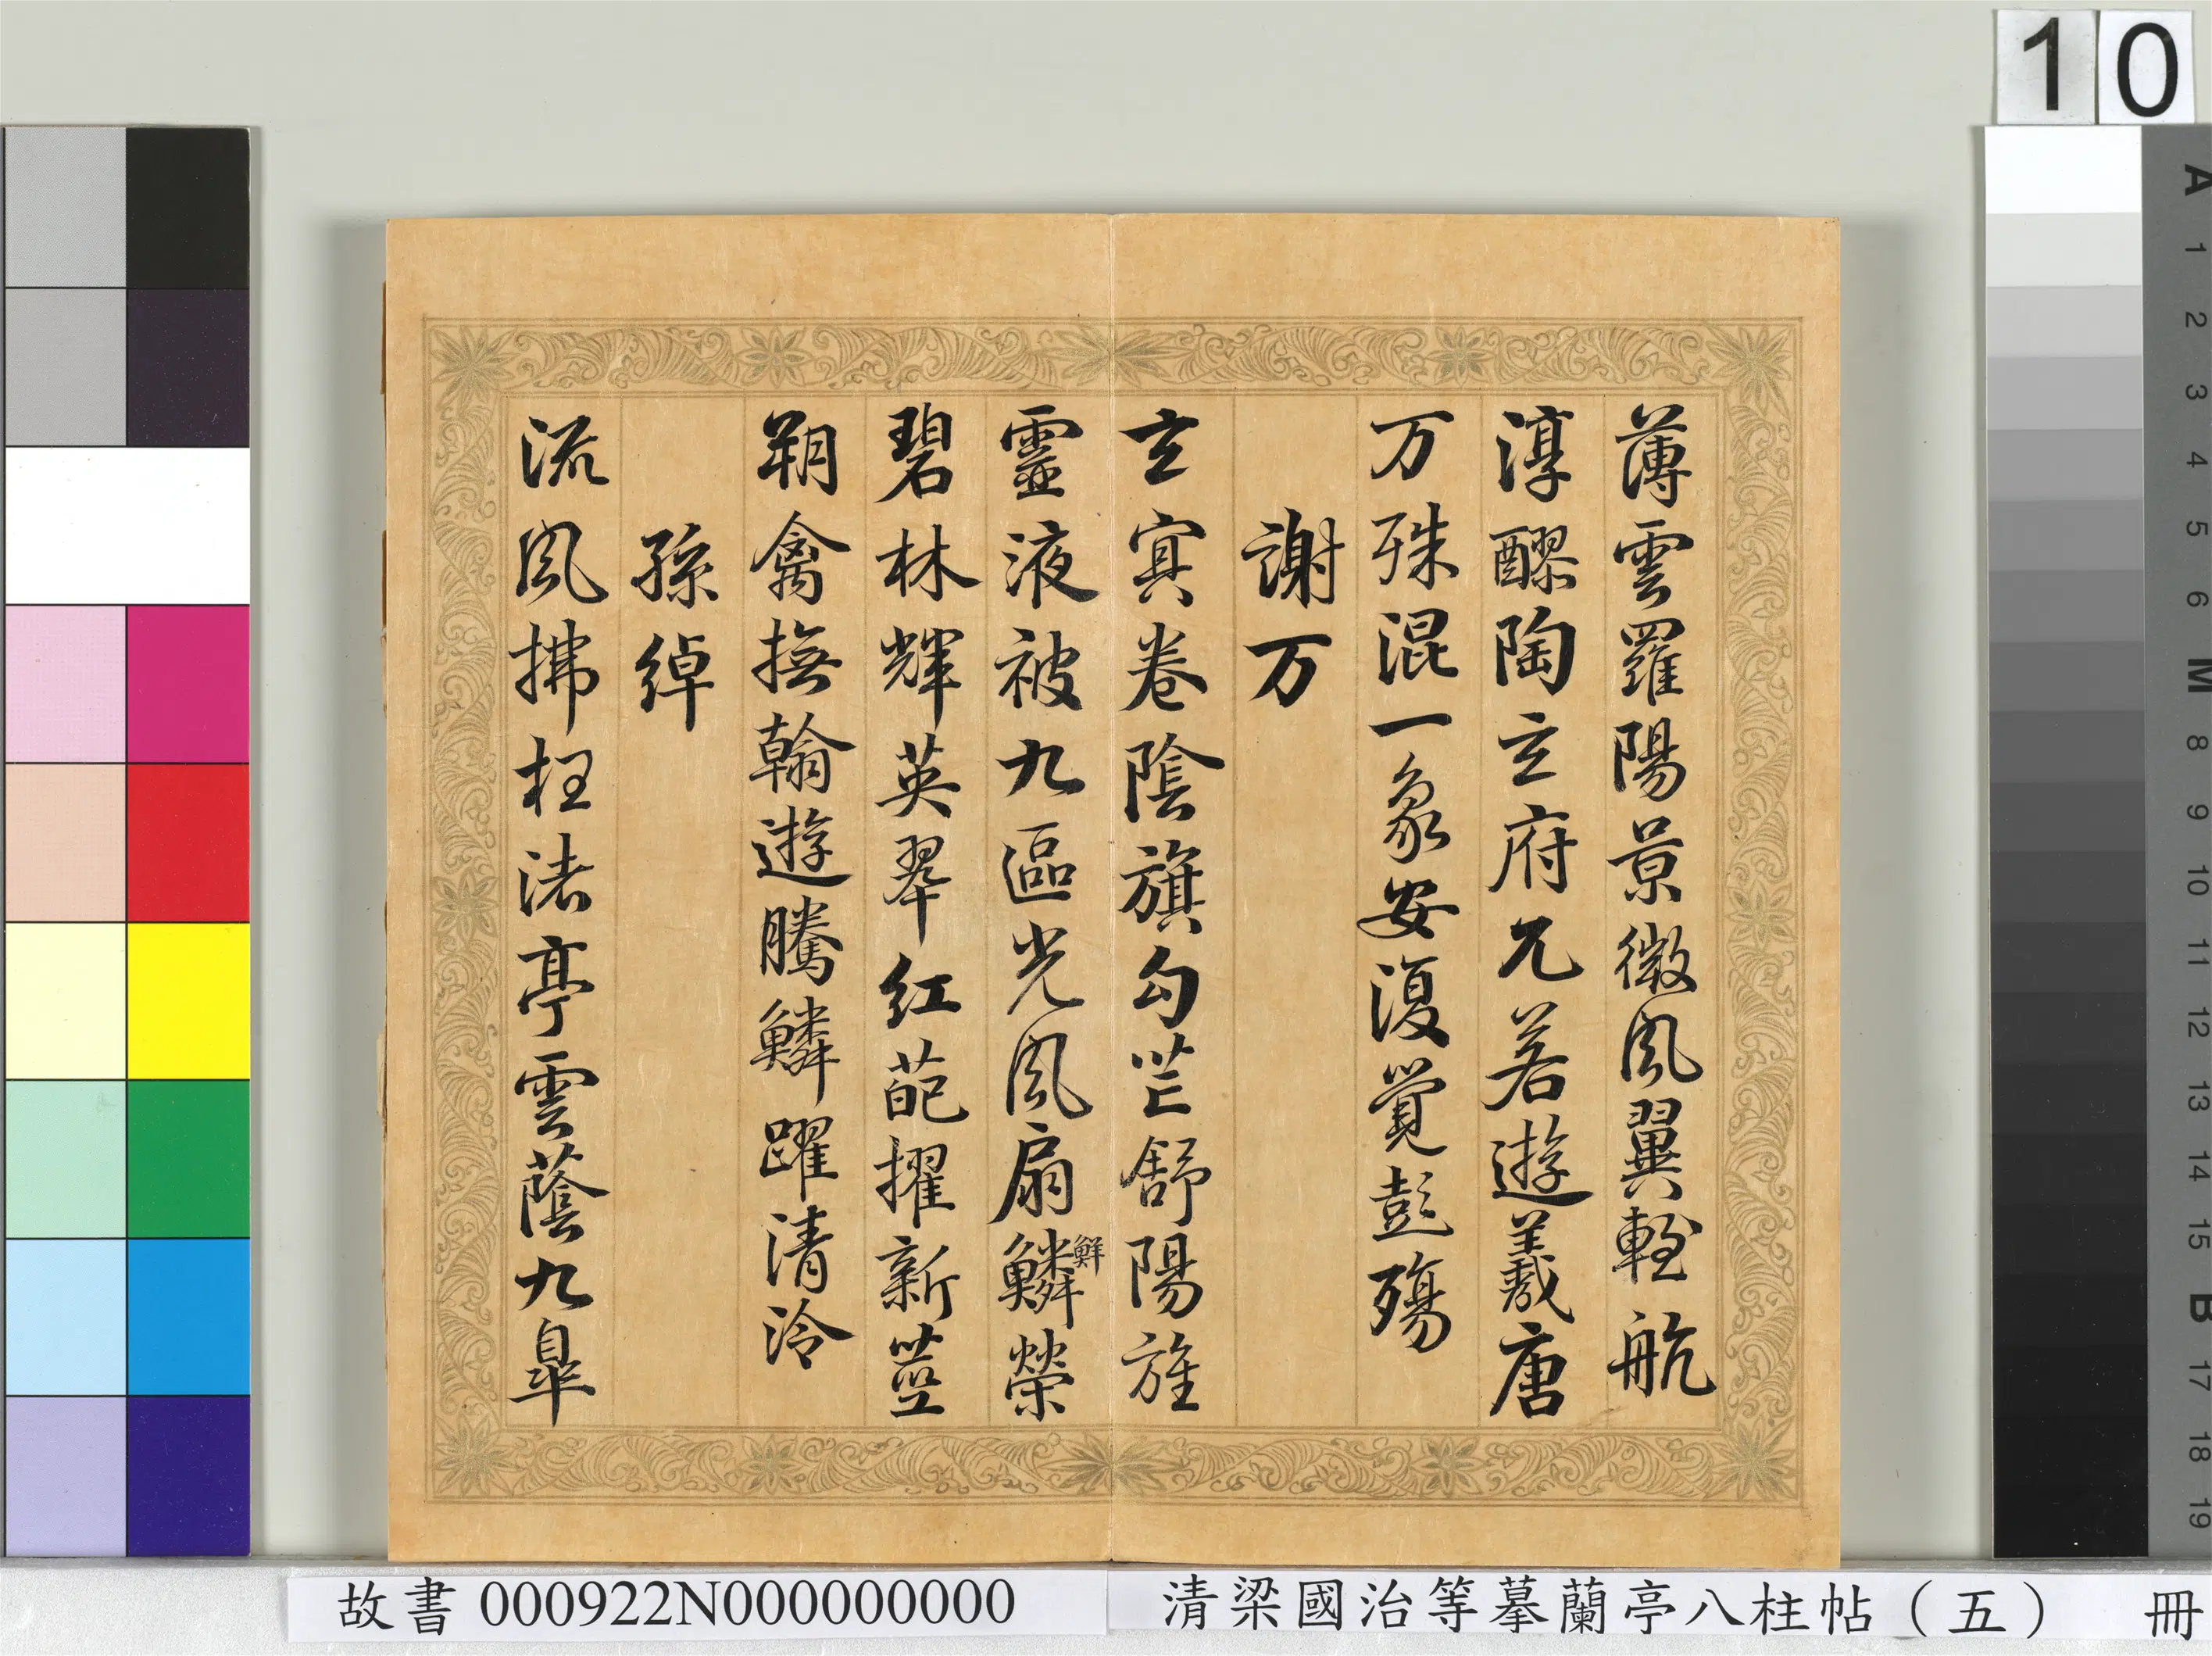 薄雲羅陽景微風翼輕航
淳醪陶玄府兀若遊羲唐
万殊混一象安復覺彭殤
謝万
玄冥卷陰旗勾芒舒陽旌
靈液被九區光風扇鱗榮
鮮
碧林輝英翠紅葩擢新莖
翔禽撫翰遊騰鱗躍清泠
孫綽
流風拂枉渚亭雲蔭九皐
10
A 1 2 3 4 5 6 M 8 9 10 11 12 13 14 15 B 17 18 19
故書 000922N000000000
清梁國治等摹蘭亭八柱帖（五） 冊